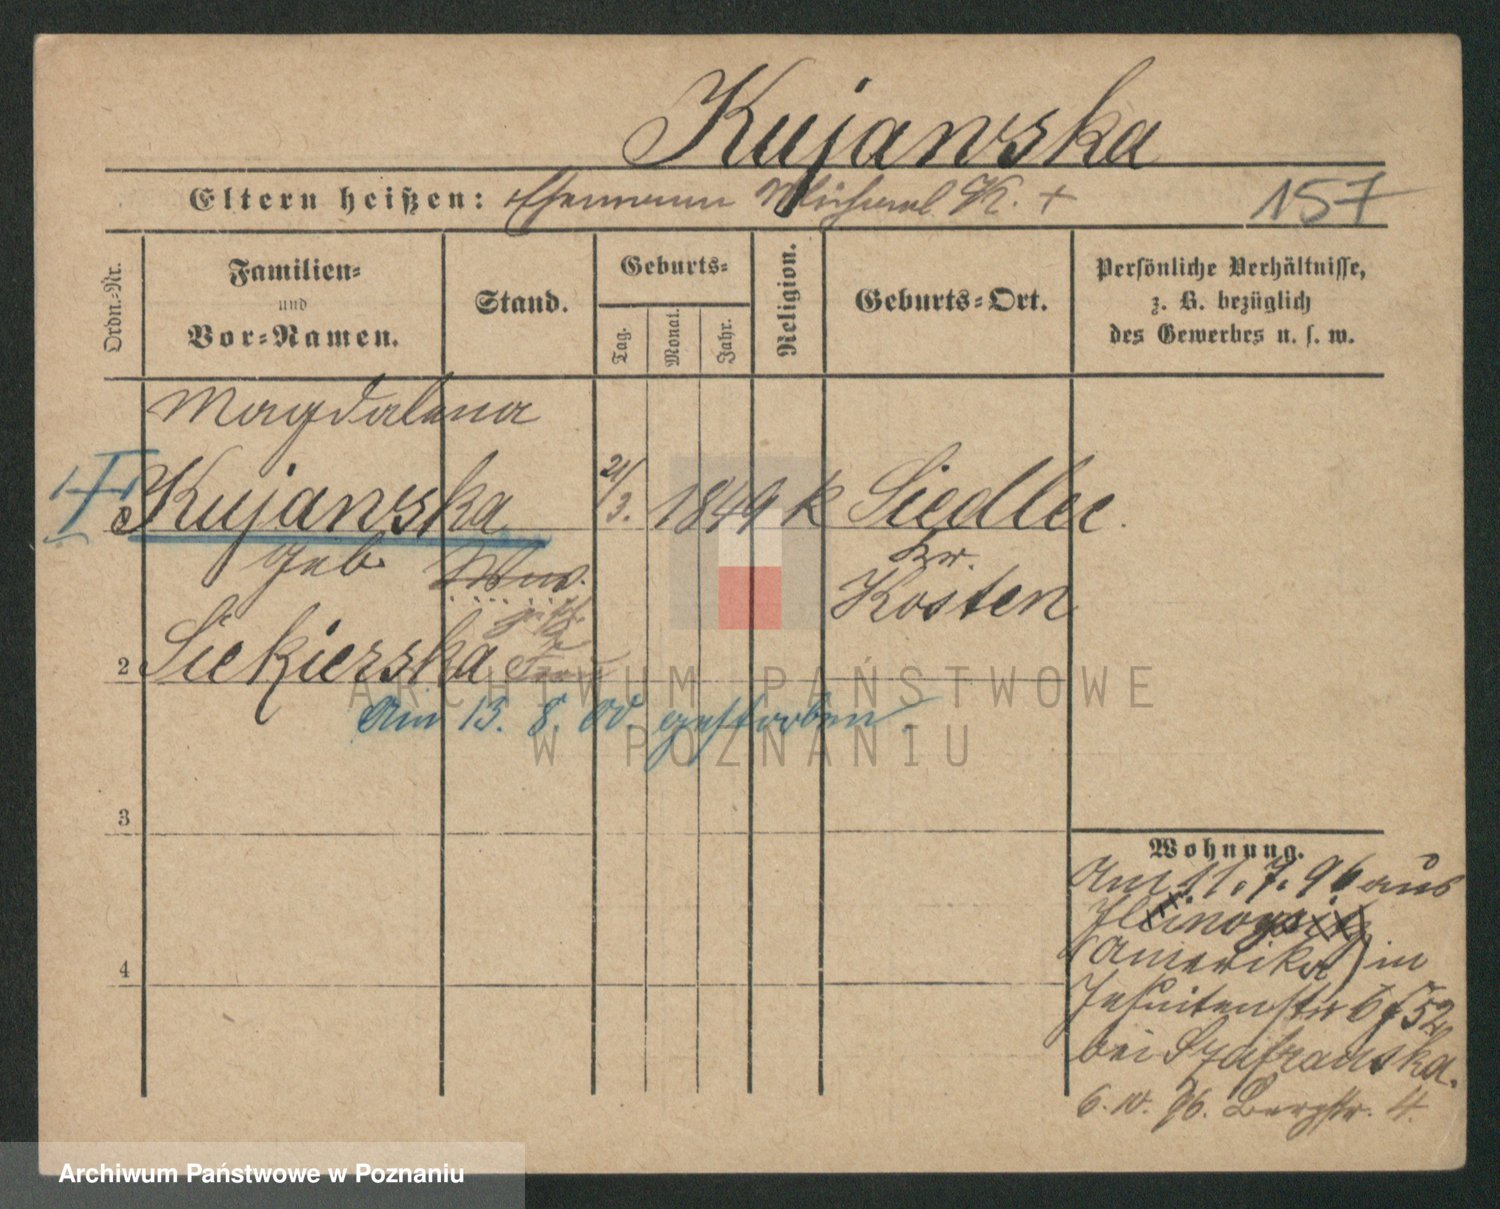 Kujawska
Eltern heißen: Ehemann Michael K. +
157
Ordn.-Nr.
Familien-
und
Vor-Namen.
Stand.
Geburts-
Tag.
Monat.
Jahr.
Religion.
Geburts-Ort.
Persönliche Verhältnisse,
z. B. bezüglich
des Gewerbes u. s. w.
Magdalena
Kujawska 21/3. 1849 k Siedlec
geb. Wwe. Kr.
Kosten
2 Siekierska
Am 13. 8. 00. gestorben.
3
4
Wohnung.
Am 11. 7. 96 aus
(Amerika) in
Jesuitenstr
bei Szafranska.
6. 10. 96. Bergstr. 4.
ARCHIWUM PAŃSTWOWE
W POZNANIU
Archiwum Państwowe w Poznaniu